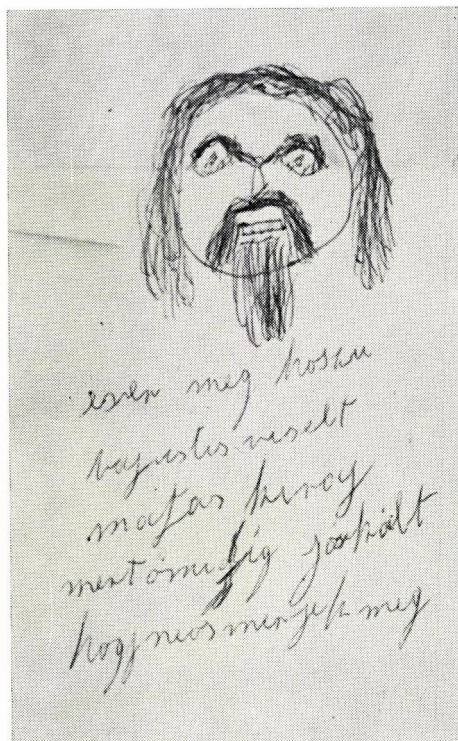 eszen meg hoszu
bajustis viselt
májas kiraj
mert ömindig járkált
hogj neosmerjek meg